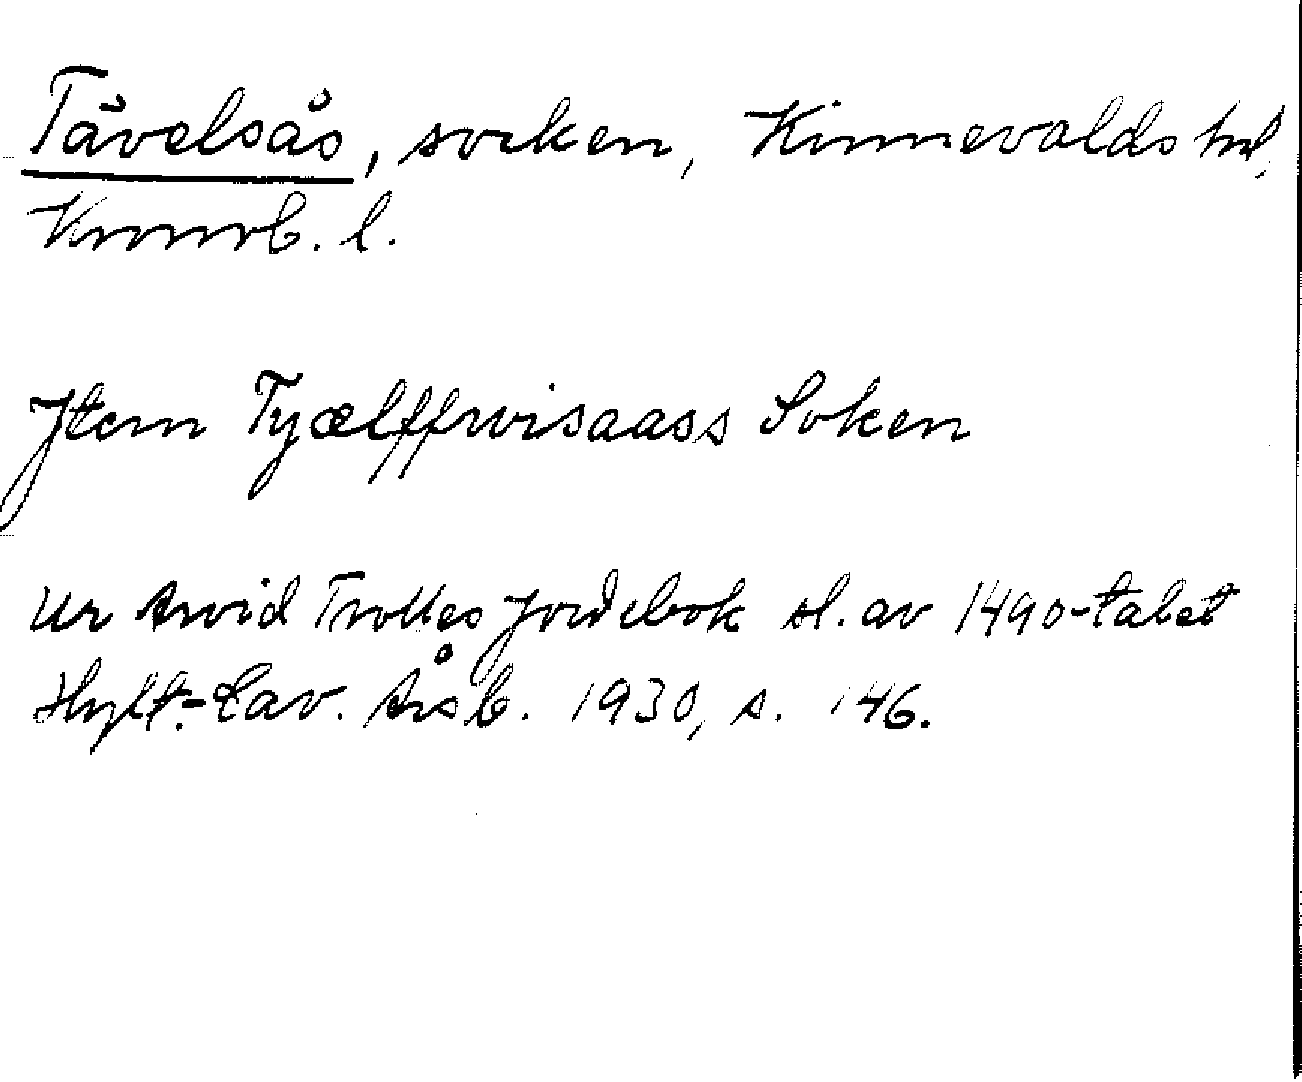 Tävelsås, socken, Kinnevalds hd,
Kronob. l.
Jtem Tyælffwisaass Soken
Ur Arvid Trolles jordebok sl. av 1490-talet
Hylt.-Cav. Årsb. 1930, s. 146.